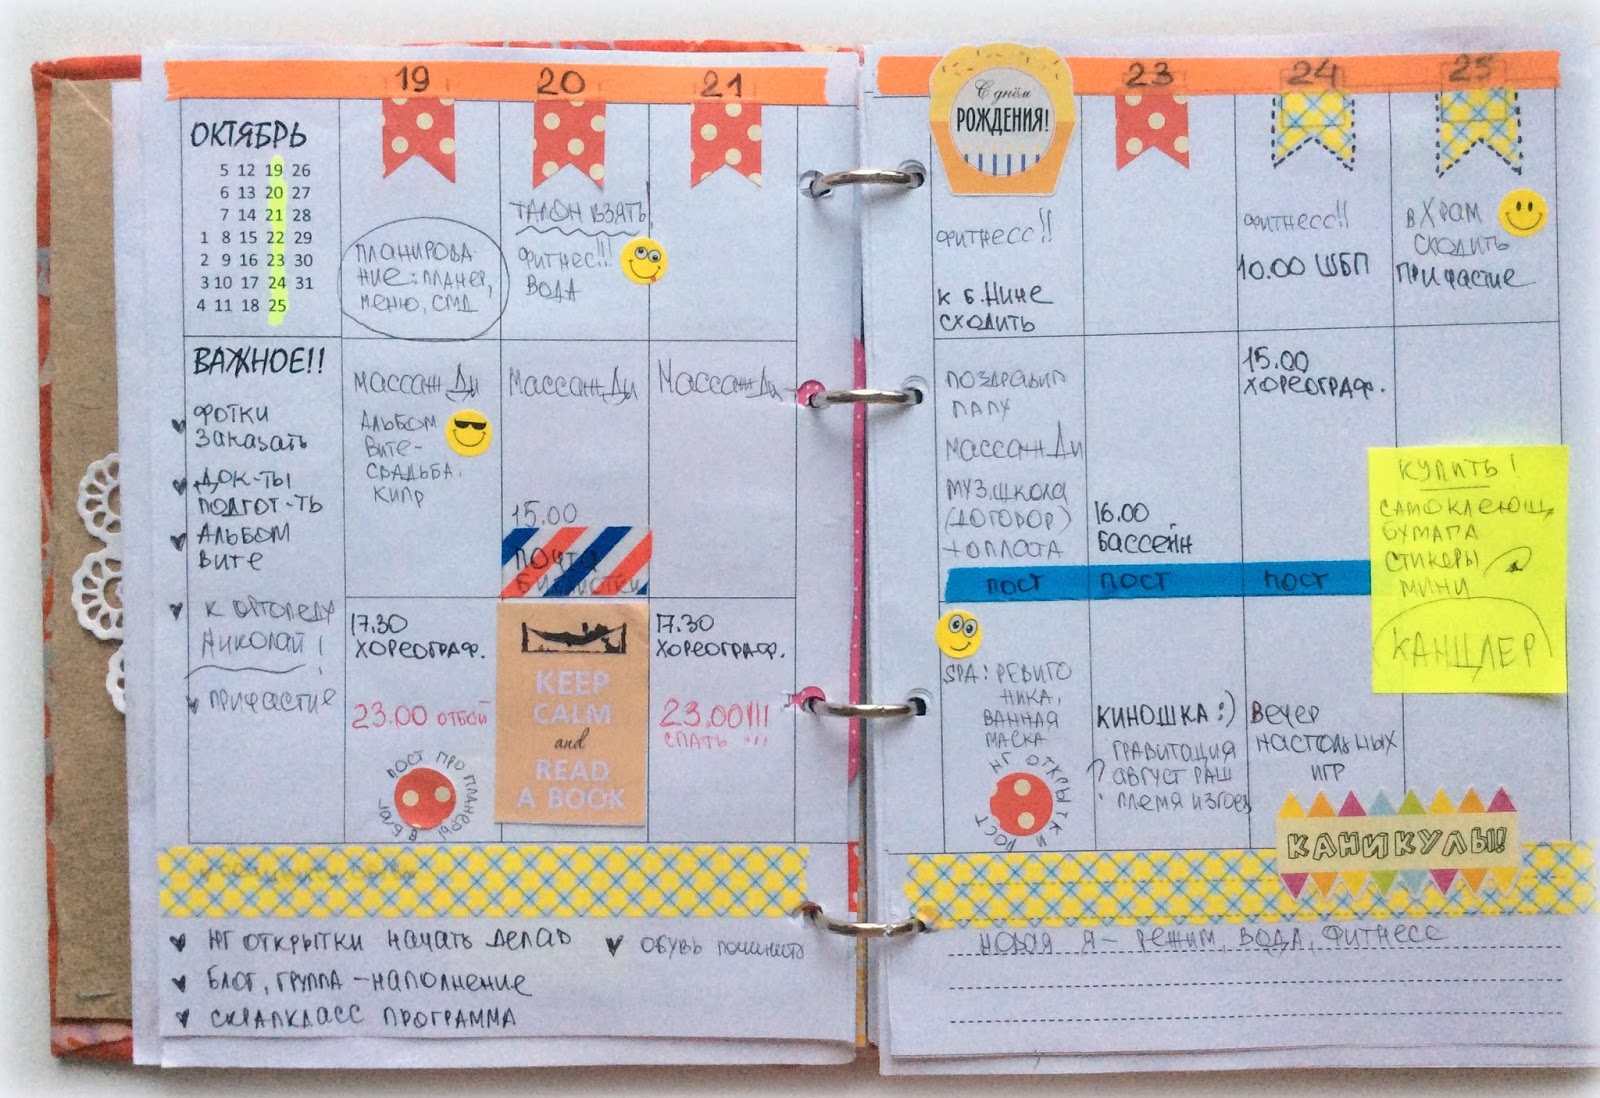 19
20
21
ОКТЯБРЬ
5 12 19 26
6 13 20 27
7 14 21 28
1 8 15 22 29
2 9 16 23 30
3 10 17 24 31
4 11 18 25
ВАЖНОЕ!!
ФОТКИ
Заказать
ДОК-ТЫ
ПОДГОТ-ТЬ
АЛЬБОМ
Вите
К ОРТОПЕДУ
НИКОЛАЙ!
ПРИЧАСТИЕ
ПЛАНИРОВА-
НИЕ: ПЛАНЕР,
МЕНЮ, СМД
МАССАЖ ДИ
АЛЬБОМ
Вите-
СВАДЬБА.
КИПР
17.30
ХОРЕОГРАФ.
23.00 ОТБОЙ
ПОСТ ПРО ПЛАНЕРЫ В БЛОГ
ТАЛОН ВЗЯТЬ
ФИТНЕС!!!
ВОДА
МАССАЖ ДИ
15.00
ПОЧТА
KEEP
CALM
and
READ
A BOOK
МАССАЖ ДИ
17.30
ХОРЕОГРАФ.
23.00!!!
СПАТЬ!!!
НГ ОТКРЫТКИ НАЧАТЬ ДЕЛАТЬ
ОБУВЬ
БЛОГ, ГРУППА - НАПОЛНЕНИЕ
СКРАПКЛАСС ПРОГРАММА
С днём
РОЖДЕНИЯ!
23
24
25
ФИТНЕСС!!
К Б. НИНЕ
СХОДИТЬ
ПОЗДРАВИТЬ
ПАПУ
МАССАЖ ДИ
МУЗ. ШКОЛА
(ДОГОВОР)
+ОПЛАТА
ПОСТ
SPA: РЕВИТО
НИКА,
ВАННАЯ
МАСКА
НГ ОТКРЫТКИ ПОСТ
16.00
БАССЕЙН
ПОСТ
КИНОШКА :)
ГРАВИТАЦИЯ
? АВГУСТ РАШ
ПЛЕМЯ ИЗГОЕВ
ФИТНЕСС!!
10.00 ШБП
15.00
ХОРЕОГРАФ.
ПОСТ
ВЕЧЕР
НАСТОЛЬНЫХ
ИГР
В ХРАМ
СХОДИТЬ
ПРИЧАСТИЕ
КУПИТЬ!
САМОКЛЕЮЩ.
БУМАГА
СТИКЕРЫ
МИНИ
КАНЦЛЕР
КАНИКУЛЫ!
НОВАЯ Я - РЕЖИМ, ВОДА, ФИТНЕСС